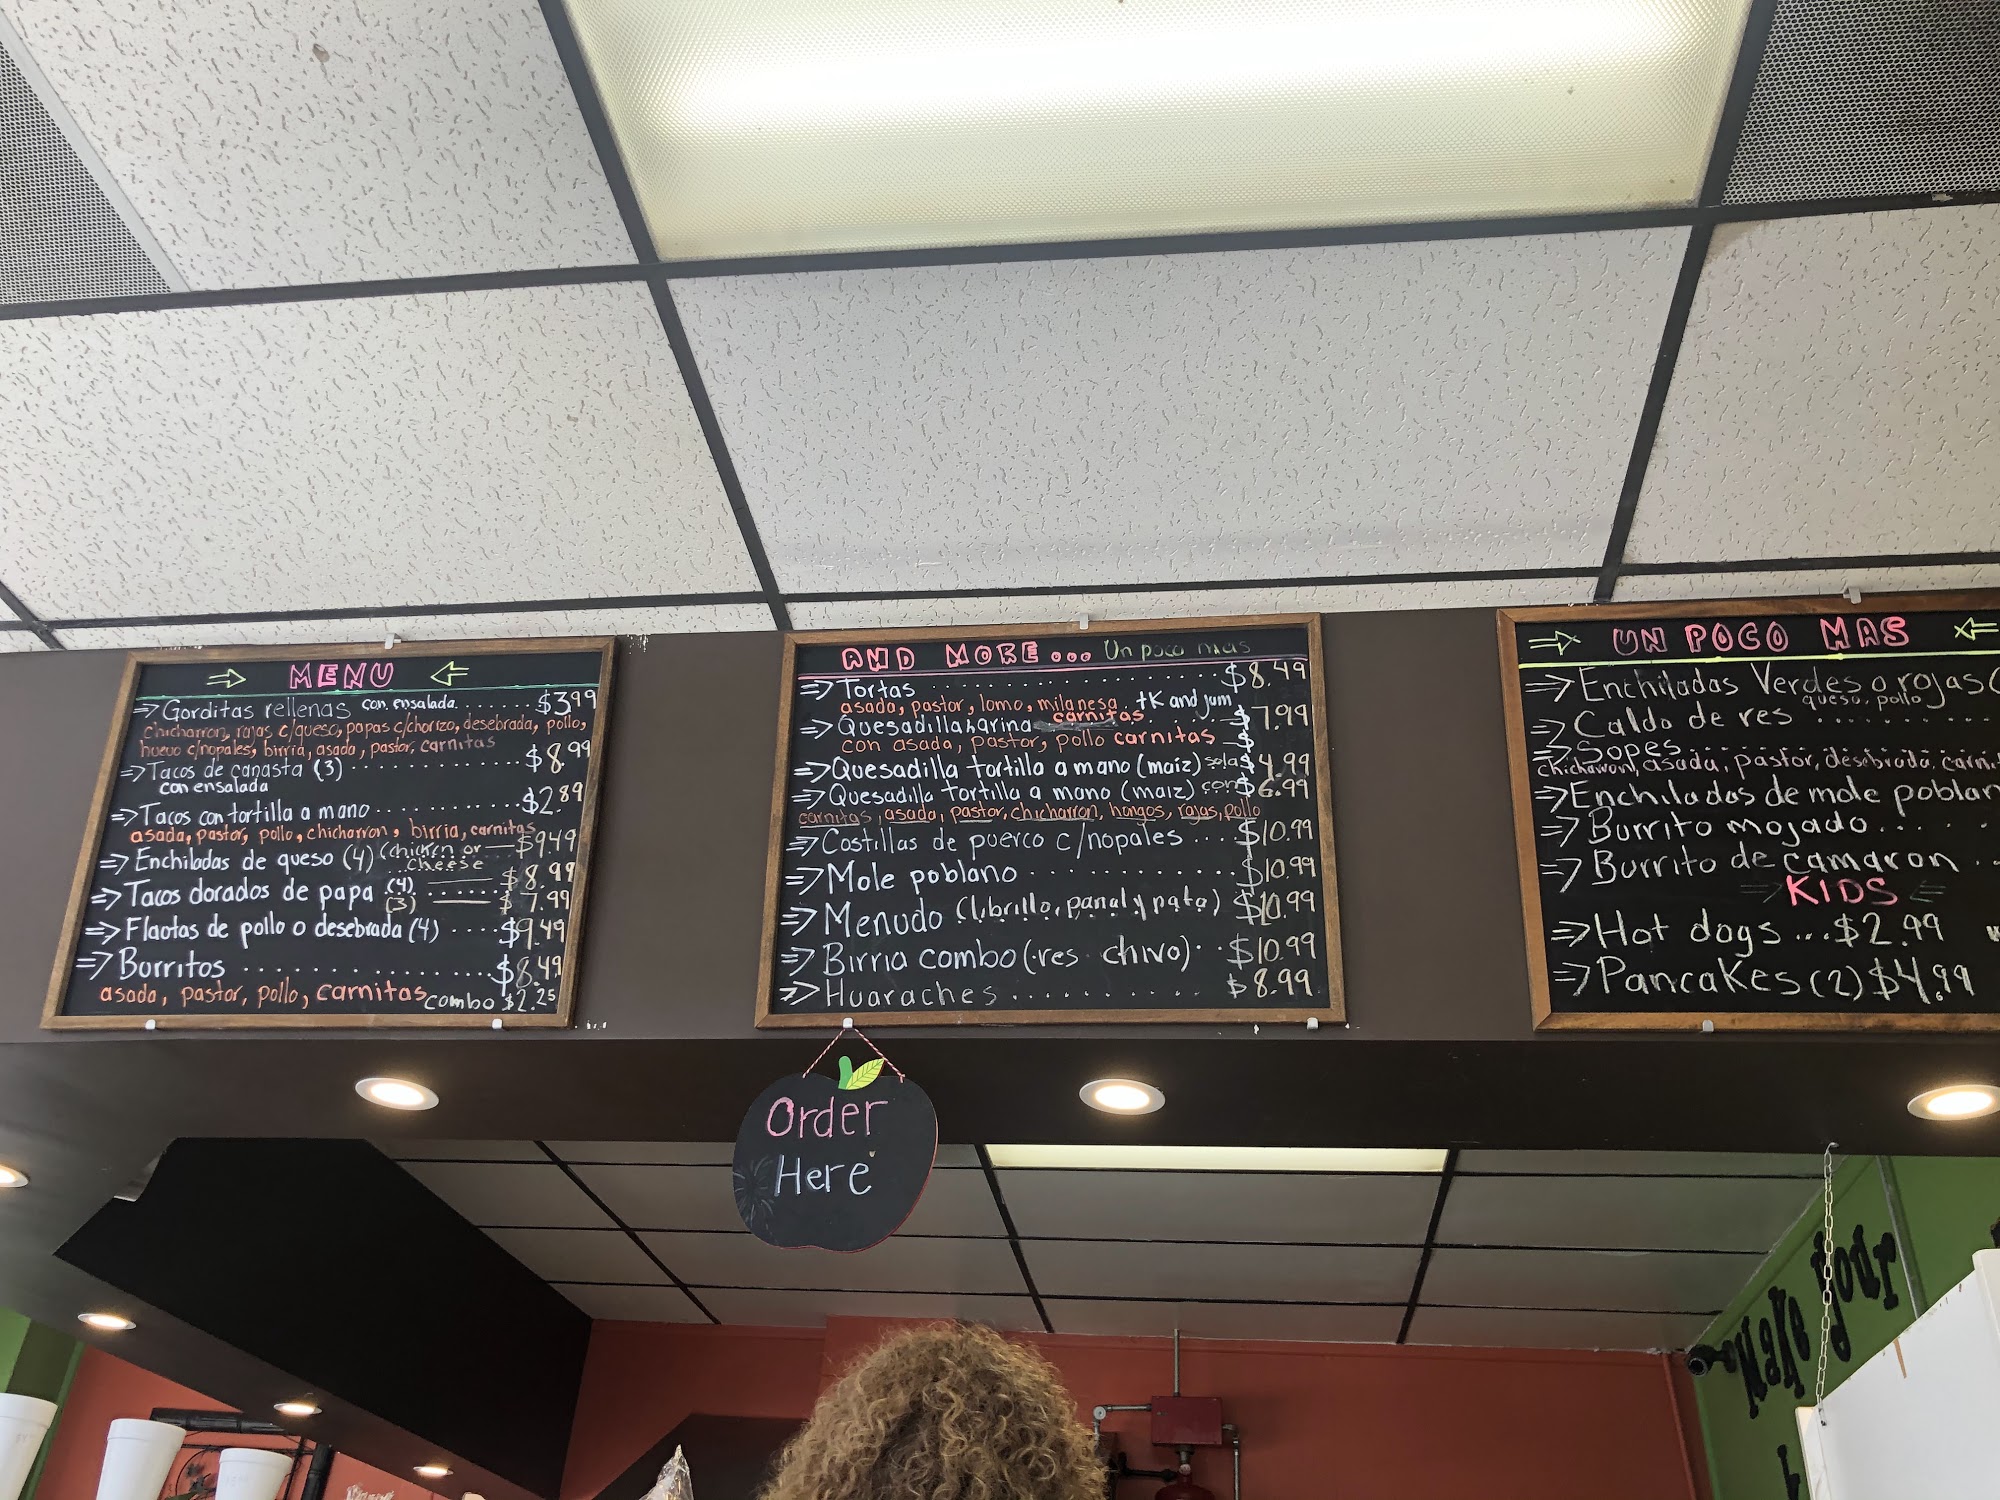 ⇒ MENU ⇐
⇒ Gorditas rellenas con ensalada....... $3.99
chicharron, rajas c/queso, papas c/chorizo, desebrada, pollo,
huevo c/nopales, birria, asada, pastor, carnitas
⇒ Tacos de canasta (3) .............. $8.99
con ensalada
⇒ Tacos con tortilla a mano........... $2.89
asada, pastor, pollo, chicharron, birria, carnitas
⇒ Enchiladas de queso (4) (chicken or — $9.49
cheese
⇒ Tacos dorados de papa (4) ...... $8.99
(3) —— $7.99
⇒ Flaotas de pollo o desebrada (4) .... $9.49
⇒ Burritos .................. $8.49
asada, pastor, pollo, carnitas combo $2.25
AND MORE... Un poco mas
⇒ Tortas .................. $8.49
asada, pastor, lomo, milanesa. tK and jum
⇒ Quesadilla harina carnitas ...... $7.99
con asada, pastor, pollo carnitas $
⇒ Quesadilla tortilla a mano (maiz) sola $4.99
⇒ Quesadilla tortilla a mano (maiz) con $6.99
carnitas, asada, pastor, chicharron, hongos, rajas, pollo
⇒ Costillas de puerco c/nopales ... $10.99
⇒ Mole poblano ............ $10.99
⇒ Menudo (librillo, panal y pata) $10.99
⇒ Birria combo (res chivo) .. $10.99
⇒ Huaraches ........... $8.99
⇒ UN POCO MAS ⇐
⇒ Enchiladas Verdes o rojas (
queso, pollo
⇒ Caldo de res .........
⇒ Sopes ..............
chicharron, asada, pastor, desebrada, carni
⇒ Enchiladas de mole poblan
⇒ Burrito mojado....
⇒ Burrito de camaron ..
⇒ KIDS ⇐
⇒ Hot dogs ... $2.99
⇒ Pancakes (2) $4.99
Order
Here
Make your